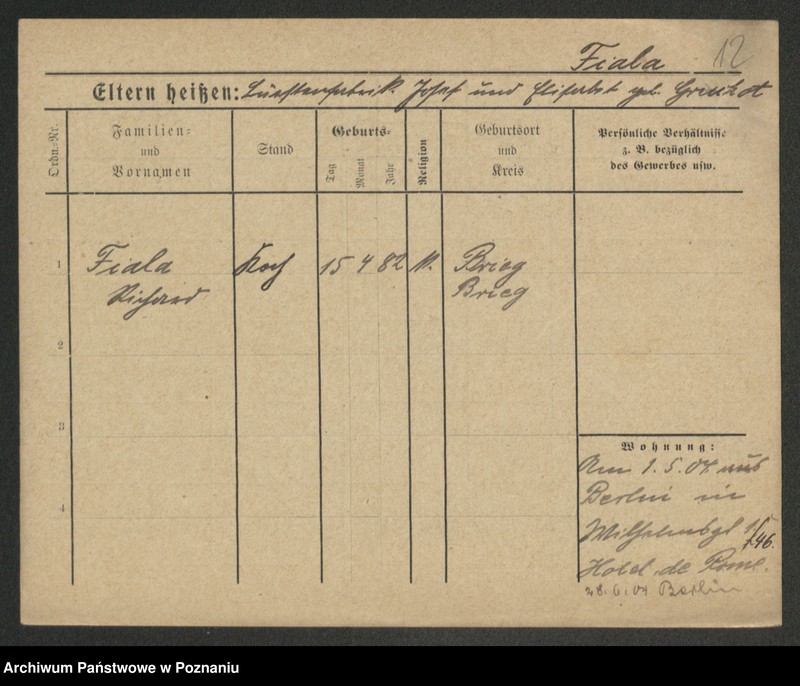 Fiala 12
Eltern heißen: Bürstenfabrik. Josef und Elisabet geb.
Ordn.-Nr.
Familien-
und
Vornamen
Stand
Geburts-
Tag
Monat
Jahr
Religion
Geburtsort
und
Kreis
Persönliche Verhältnisse
z. B. bezüglich
des Gewerbes usw.
1 Fiala Koch 15 4 82 K. Brieg
Richard Brieg
2
3
4
Wohnung:
Am 1.5.04 aus
Berlin in
Wilhelmspl
46.
Hotel de Rome.
28.6.04 Berlin
Archiwum Państwowe w Poznaniu